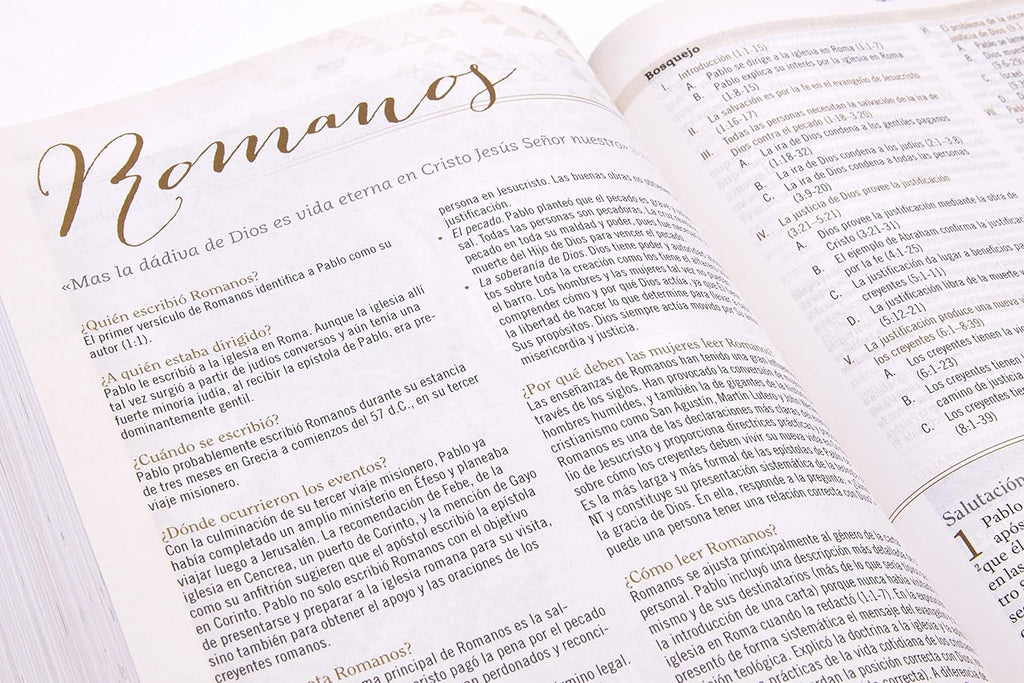 Romanos
«Mas la dádiva de Dios es vida eterna en Cristo Jesús Señor nuestro»
¿Quién escribió Romanos?
El primer versículo de Romanos identifica a Pablo como su
autor (1.1).
¿A quién estaba dirigido?
Pablo le escribió a la iglesia en Roma. Aunque la iglesia allí
tal vez surgió a partir de judíos conversos y aún tenía una
fuerte minoría judía, al recibir la epístola de Pablo, era pre-
dominantemente gentil.
¿Cuándo se escribió?
Pablo probablemente escribió Romanos durante su estancia
de tres meses en Grecia a comienzos del 57 d.C., en su tercer
viaje misionero.
¿Dónde ocurrieron los eventos?
Con la culminación de su tercer viaje misionero, Pablo ya
había completado un amplio ministerio en Éfeso y planeaba
viajar luego a Jerusalén. La recomendación de Febe, de la
iglesia en Cencrea, un puerto de Corinto, y la mención de Gayo
como su anfitrión sugieren que el apóstol escribió la epístola
en Corinto. Pablo no solo escribió Romanos con el objetivo
de presentarse y preparar a la iglesia romana para su visita,
sino también para obtener el apoyo y las oraciones de los
creyentes romanos.
Romanos?
principal de Romanos es la sal-
cristo pagó la pena por el pecado
perdonados y reconci-
legal.
persona en Jesucristo. Las buenas obras no
justificación.
• El pecado. Pablo planteó que el pecado es
sal. Todas las personas son pecadoras. La cruz
pecado en toda su maldad y poder, pues fue
muerte del Hijo de Dios para vencer el pecado.
• La soberanía de Dios. Dios tiene poder y
tos sobre toda la creación como los tiene el
el barro. Los hombres y las mujeres tal vez no
comprender cómo y por qué Dios actúa, ya
la libertad de hacer lo que determine para llevar
Sus propósitos. Dios siempre actúa movido por
misericordia y justicia.
¿Por qué deben las mujeres leer Romanos?
Las enseñanzas de Romanos han tenido una gran
través de los siglos. Han provocado la conversión de
hombres humildes, y también la de gigantes de
cristianismo como San Agustín, Martín Lutero y
Romanos es una de las declaraciones más claras del
lio de Jesucristo y proporciona directrices prácticas
sobre cómo los creyentes deben vivir su nueva vida
Es la más larga y más formal de las epístolas de Pablo
NT y constituye su presentación sistemática de la
la gracia de Dios. En ella, responde a la pregunta
puede una persona tener una relación correcta con
¿Cómo leer Romanos?
Romanos se ajusta principalmente al género de la carta
personal. Pablo incluyó una descripción más detallada
mismo y de sus destinatarios (más de lo que sería
la introducción de una carta) porque nunca había
iglesia en Roma cuando la redactó (1.1-7). En la
presentó de forma sistemática el mensaje del evangelio
sición teológica. Explicó la doctrina a la iglesia y
prácticas de la vida cotidiana de los
la posición correcta con Dios
correcta). A diferencia de
Bosquejo
I. Introducción (1.1-15)
A. Pablo se dirige a la iglesia en Roma (1.1-7)
B. Pablo explica su interés por la iglesia en Roma
(1.8-15)
II. La salvación es por la fe en el evangelio de Jesucristo
(1.16-17)
III. Todas las personas necesitan la salvación de la ira de
Dios contra el pecado (1.18–3.20)
A. La ira de Dios condena a los gentiles paganos
(1.18-32)
B. La ira de Dios condena a los judíos (2.1–3.8)
C. La ira de Dios condena a todas las personas
(3.9-20)
IV. La justicia de Dios provee la justificación
(3.21–5.21)
A. Dios provee la justificación mediante la obra de
Cristo (3.21-31)
B. El ejemplo de Abraham confirma la
por la fe (4.1-25)
C. La justificación da lugar a beneficios para
creyentes (5.1-11)
D. La justificación libra de la muerte y
(5.12-21)
V. La justificación produce una nueva
los creyentes (6.1–8.39)
A. Los creyentes tienen la
(6.1-23)
B. Los creyentes tienen
camino de justicia
C. Los creyentes
(8.1-39)
VI. El problema de la
justicia de Dios
A. Pablo se
B. Dios
C. Israel
D. Dios
Salutación
1 Pablo
apóst
²que él
en las